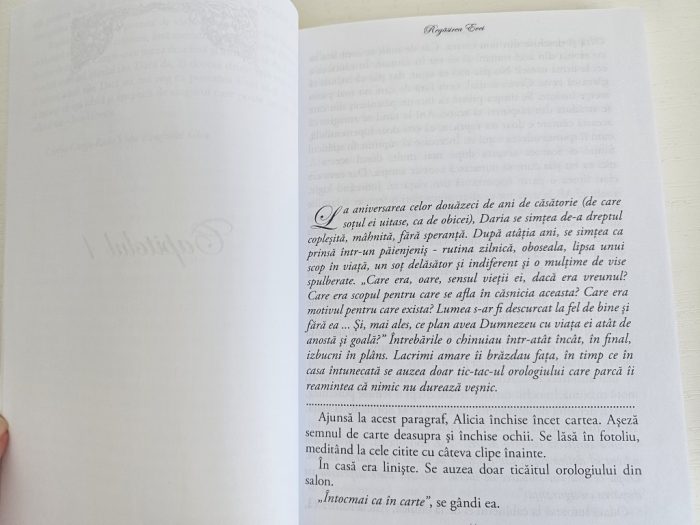 Regăsirea Evei
La aniversarea celor douăzeci de ani de căsătorie (de care
soțul ei uitase, ca de obicei), Daria se simțea de-a dreptul
copleșită, mâhnită, fără speranță. După atâția ani, se simțea ca
prinsă într-un păienjeniș - rutina zilnică, oboseala, lipsa unui
scop în viață, un soț delăsător și indiferent și o mulțime de vise
spulberate. „Care era, oare, sensul vieții ei, dacă era vreunul?
Care era scopul pentru care se afla în căsnicia aceasta? Care era
motivul pentru care exista? Lumea s-ar fi descurcat la fel de bine și
fără ea ... Și, mai ales, ce plan avea Dumnezeu cu viața ei atât de
anostă și goală?” Întrebările o chinuiau într-atât încât, în final,
izbucni în plâns. Lacrimi amare îi brăzdau fața, în timp ce în
casa întunecată se auzea doar tic-tac-ul orologiului care parcă îi
reamintea că nimic nu durează veșnic.
Ajunsă la acest paragraf, Alicia închise încet cartea. Așeză
semnul de carte deasupra și închise ochii. Se lăsă în fotoliu,
meditând la cele citite cu câteva clipe înainte.
În casă era liniște. Se auzea doar ticăitul orologiului din
salon.
„Întocmai ca în carte”, se gândi ea.
Capitolul 1